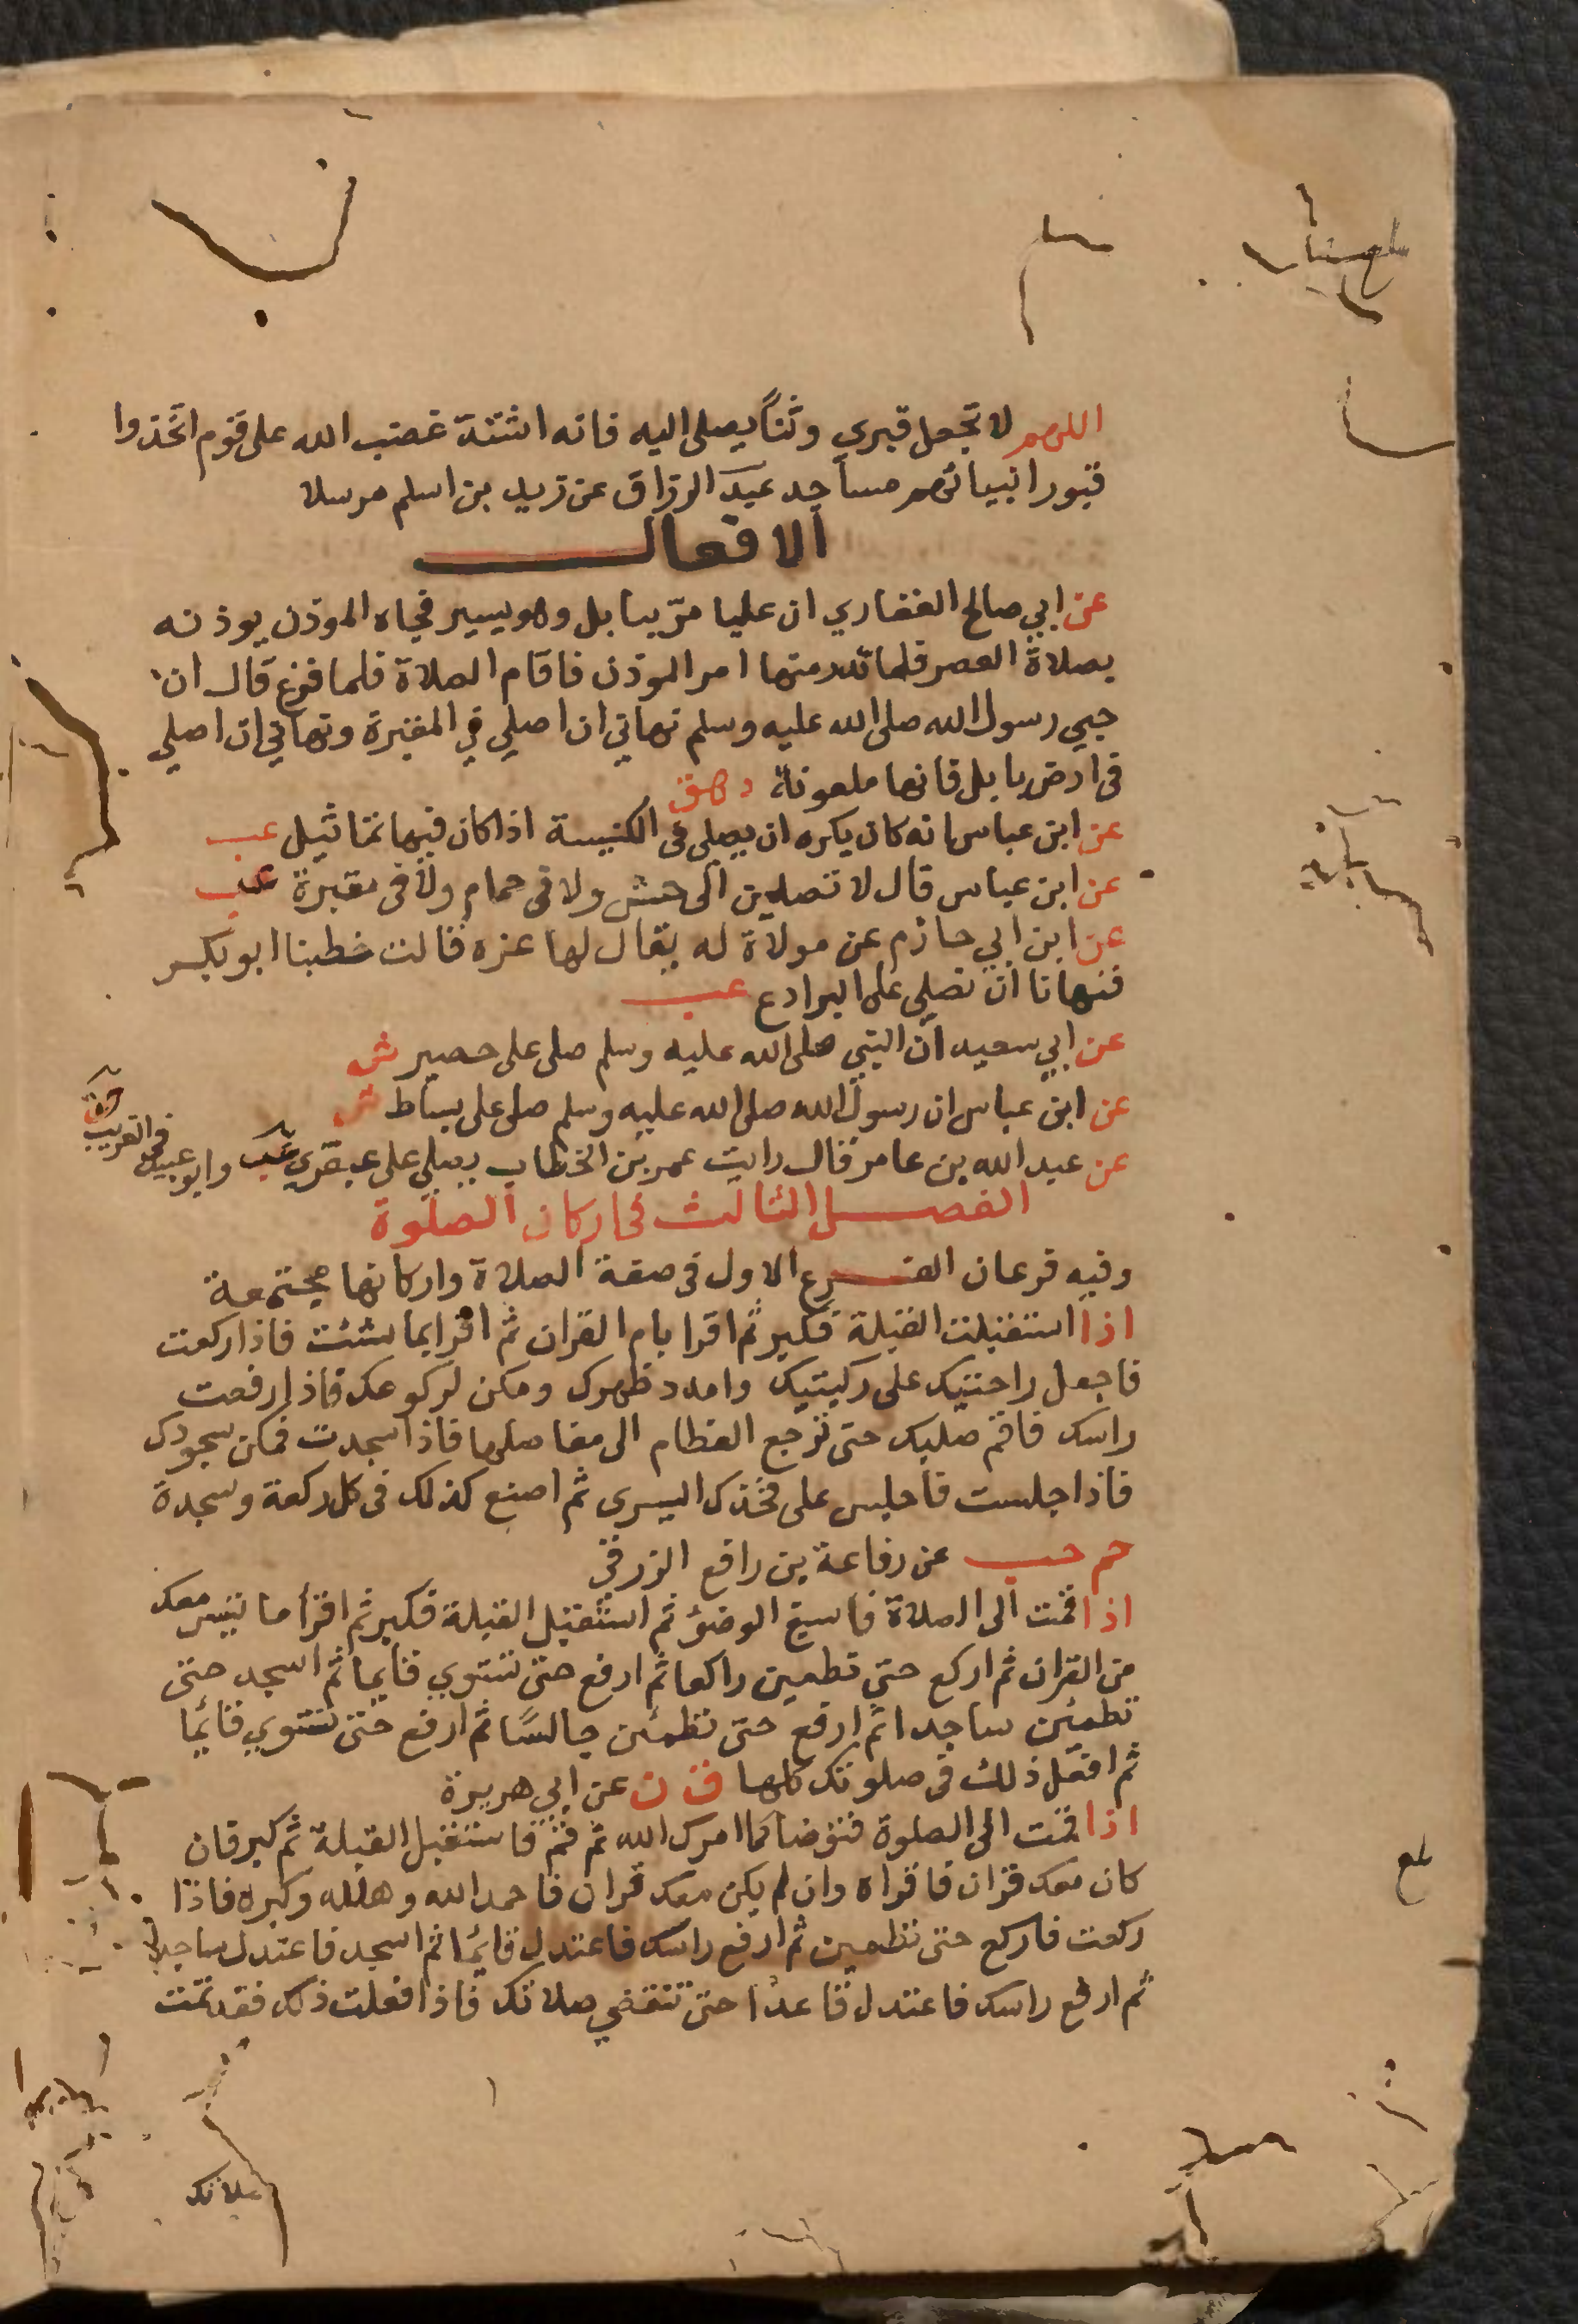 اللهم لا تجعل قبري وثناً يصلى اليه فانه اشتد غضب الله على قوم اتخذوا
قبور انبيائهم مساجد عبد الرزاق عن زيد بن اسلم مرسلا
الافعال
عن ابي صالح الغفاري ان عليا مرّ ببابل وهو يسير فجاه الموذن يوذنه
بصلاة العصر فلما امر الموذن فاقام الصلاة فلما فرغ قال ان
حبي رسول الله صلى الله عليه وسلم نهاني ان اصلي في المقبرة ونهاني ان اصلي
في ارض بابل فانها ملعونة د هق
عن ابن عباس انه كان يكره ان يصلى فى الكنيسة اذا كان فيها تماثيل عب
عن ابن عباس قال لا تصلين الى حش ولا فى حمام ولا فى مقبرة عب
عن ابن ابي حازم عن مولاة له يقال لها عزه قالت خطبنا ابو بكر
فنهانا ان نصلي على البرادع عب
عن ابي سعيد ان النبي صلى الله عليه وسلم صلى على حصير ش
عن ابن عباس ان رسول الله صلى الله عليه وسلم صلى على بساط ش
عن عبد الله بن عامر قال رايت عمر بن الخطاب يصلي على عبقري عب وابو عبيد فى الغريب
الفصل الثالث في اركان الصلوة
وفيه فرعان الفرع الاول فى صفة الصلاة واركانها مجتمعة
اذا استقبلت القبلة فكبر ثم اقرا بام القران ثم اقرا بما شئت فاذا ركعت
فاجعل راحتيك على ركبتيك وامدد ظهرك ومكن لركوعك فاذا رفعت
راسك فاقم صلبك حتى ترجع العظام الى مفاصلها فاذا سجدت فمكن سجودك
فاذا جلست فاجلس على فخذك اليسرى ثم اصنع كذلك فى كل ركعة وسجدة
حم حب عن رفاعة بن رافع الزرقي
اذا قمت الى الصلاة فاسبغ الوضؤ ثم استقبل القبلة فكبر ثم اقرأ ما تيسر معك
من القران ثم اركع حتى تطمين راكعا ثم ارفع حتى تستوي قايما ثم اسجد حتى
تطمئن ساجدا ثم ارفع حتى تطمئن جالسًا ثم ارفع حتى تستوي قائما
ثم افعل ذلك فى صلوتك كلها ق ن عن ابي هريرة
اذا قمت الى الصلوة فتوضا كما امرك الله ثم قم فاستقبل القبلة ثم كبر فان
كان معك قران فاقراه وان لم يكن معك قران فاحمد الله وهلله وكبره فاذا
ركعت فاركع حتى تطمين ثم ارفع راسك فاعتدل قائما ثم اسجد فاعتدل ساجدا
ثم ارفع راسك فاعتدل قاعدا حتى تنقضي صلاتك فاذا فعلت ذلك فقد تمت
بلغ
صلاتك